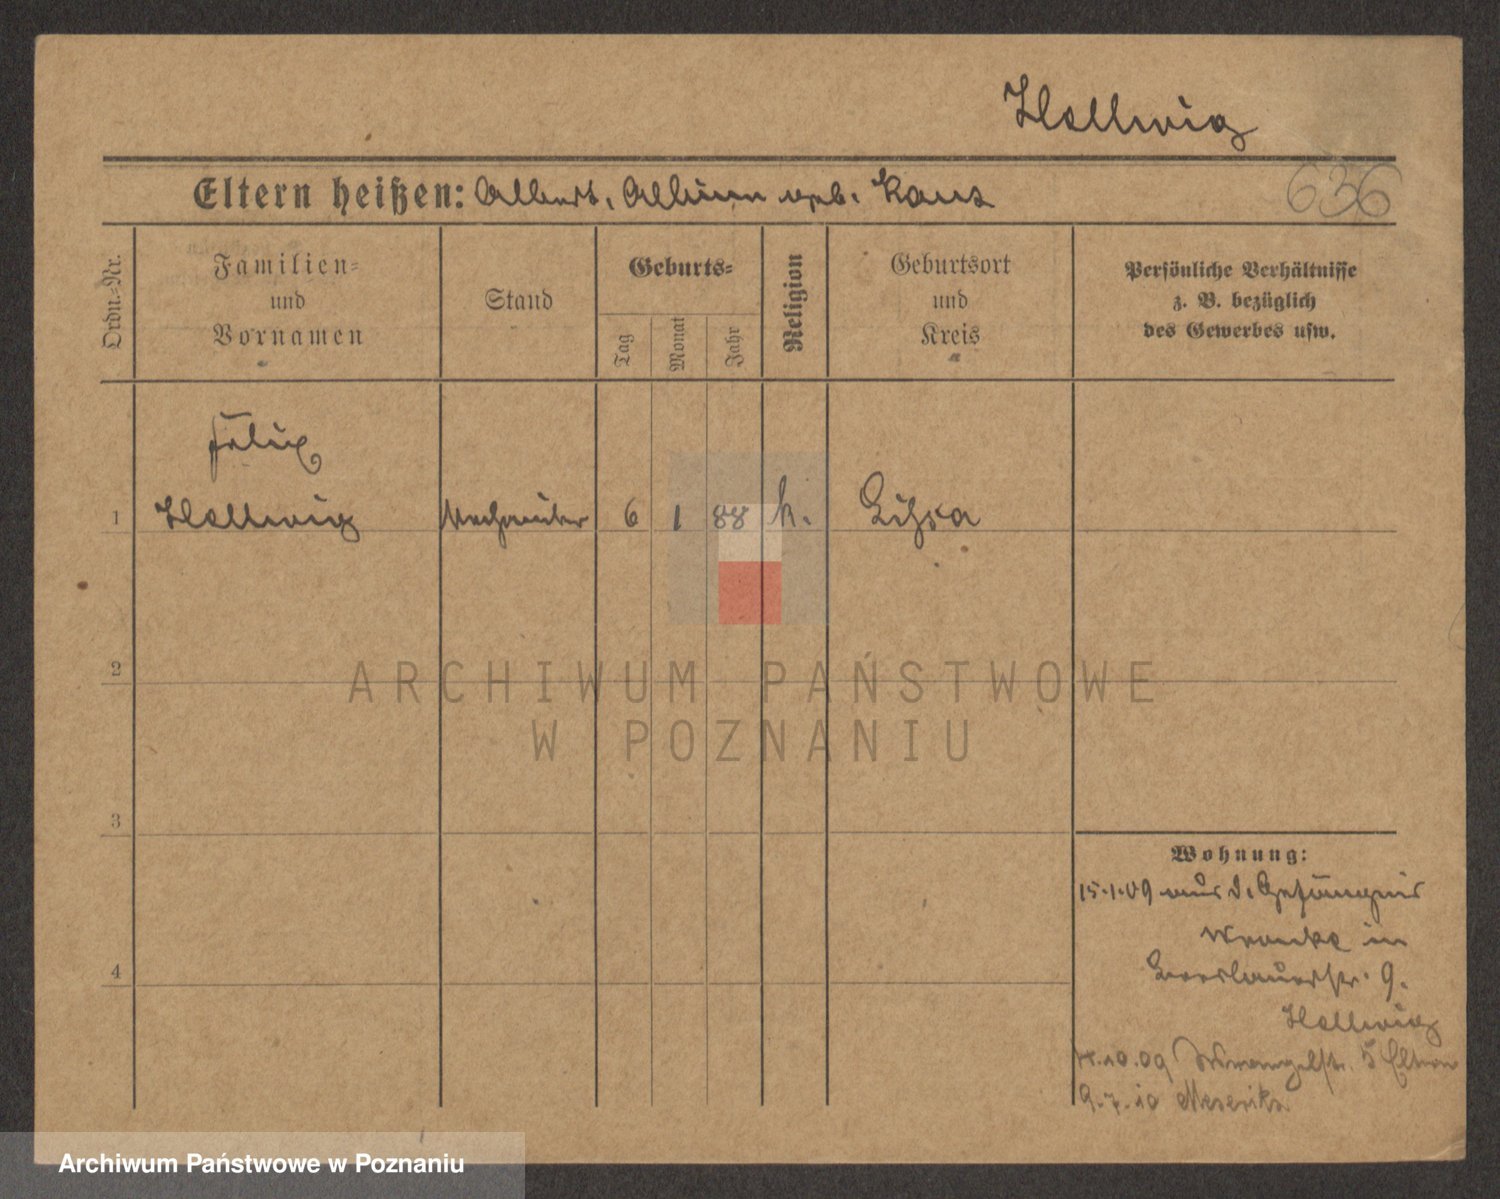 Hellwig
Eltern heißen: Albert, geb.
636
Ordn.-Nr.
Familien-
und
Vornamen
Stand
Geburts-
Tag
Monat
Jahr
Religion
Geburtsort
und
Kreis
Persönliche Verhältnisse
z. B. bezüglich
des Gewerbes usw.
Felix
1 Hellwig 6 1 88 k. Lissa
2
3
4
Wohnung:
15.1.09 aus d. Gefängnis
Wronke in
Breslauerstr. 9.
Hellwig
10.09 Wrangelstr. 5 Eltern
9.7.10
ARCHIWUM PAŃSTWOWE
W POZNANIU
Archiwum Państwowe w Poznaniu